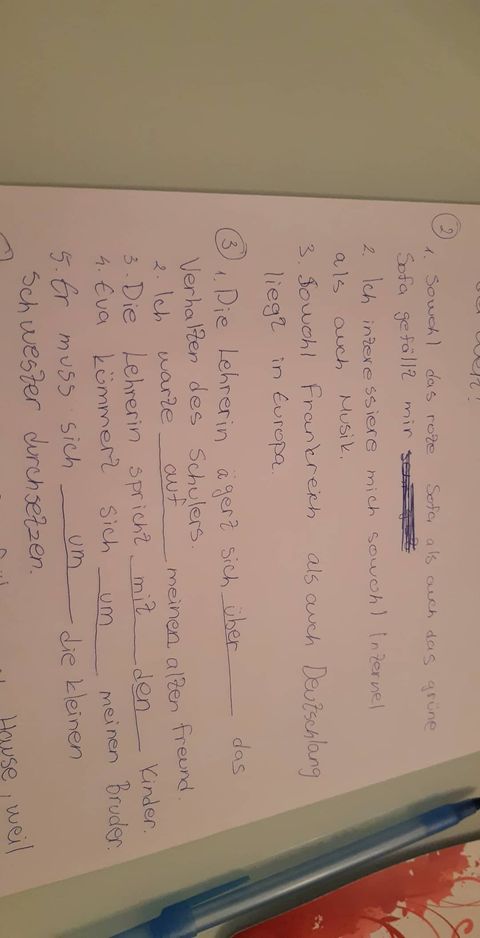 der Welt!
2
1. Sowohl das rote Sofa als auch das grüne
Sofa gefällt mir
2. Ich interessiere mich sowohl Internel
als auch Musik.
3. Sowohl Frankreich als auch Deutschlang
liegt in Europa.
3 1. Die Lehrerin ägert sich über das
Verhalten des Schulers.
2. Ich warte auf meinen alten Freund.
3. Die Lehrerin spricht mit den Kinder.
4. Eva kümmert sich um meinen Bruder.
5. Er muss sich um die kleinen
Schwester durchsetzen.
Hause, weil